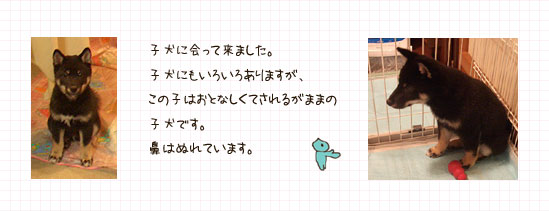 子犬に会って来ました。
子犬にもいろいろありますが、
この子はおとなしくてされるがままの
子犬です。
鼻はぬれています。